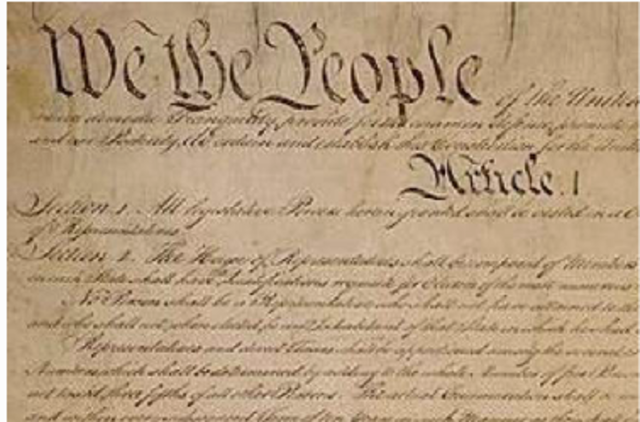 We the People of the United
insure domestic Tranquility, provide for the common defence, promote
and our Posterity, do ordain and establish this Constitution for the United
Article. I
Section 1. All legislative Powers herein granted shall be vested in a C
of Representatives.
Section 2. The House of Representatives shall be composed of Members
in each State shall have Qualifications requisite for Electors of the most numerous
No Person shall be a Representative who shall not have attained to the
and who shall not, when elected, be an Inhabitant of that State in which he shall
Representatives and direct Taxes shall be apportioned among the several
Numbers, which shall be determined by adding to the whole Number of free
not taxed, three fifths of all other Persons. The actual Enumeration shall be
and within every subsequent Term of ten Years, in such Manner as they shall